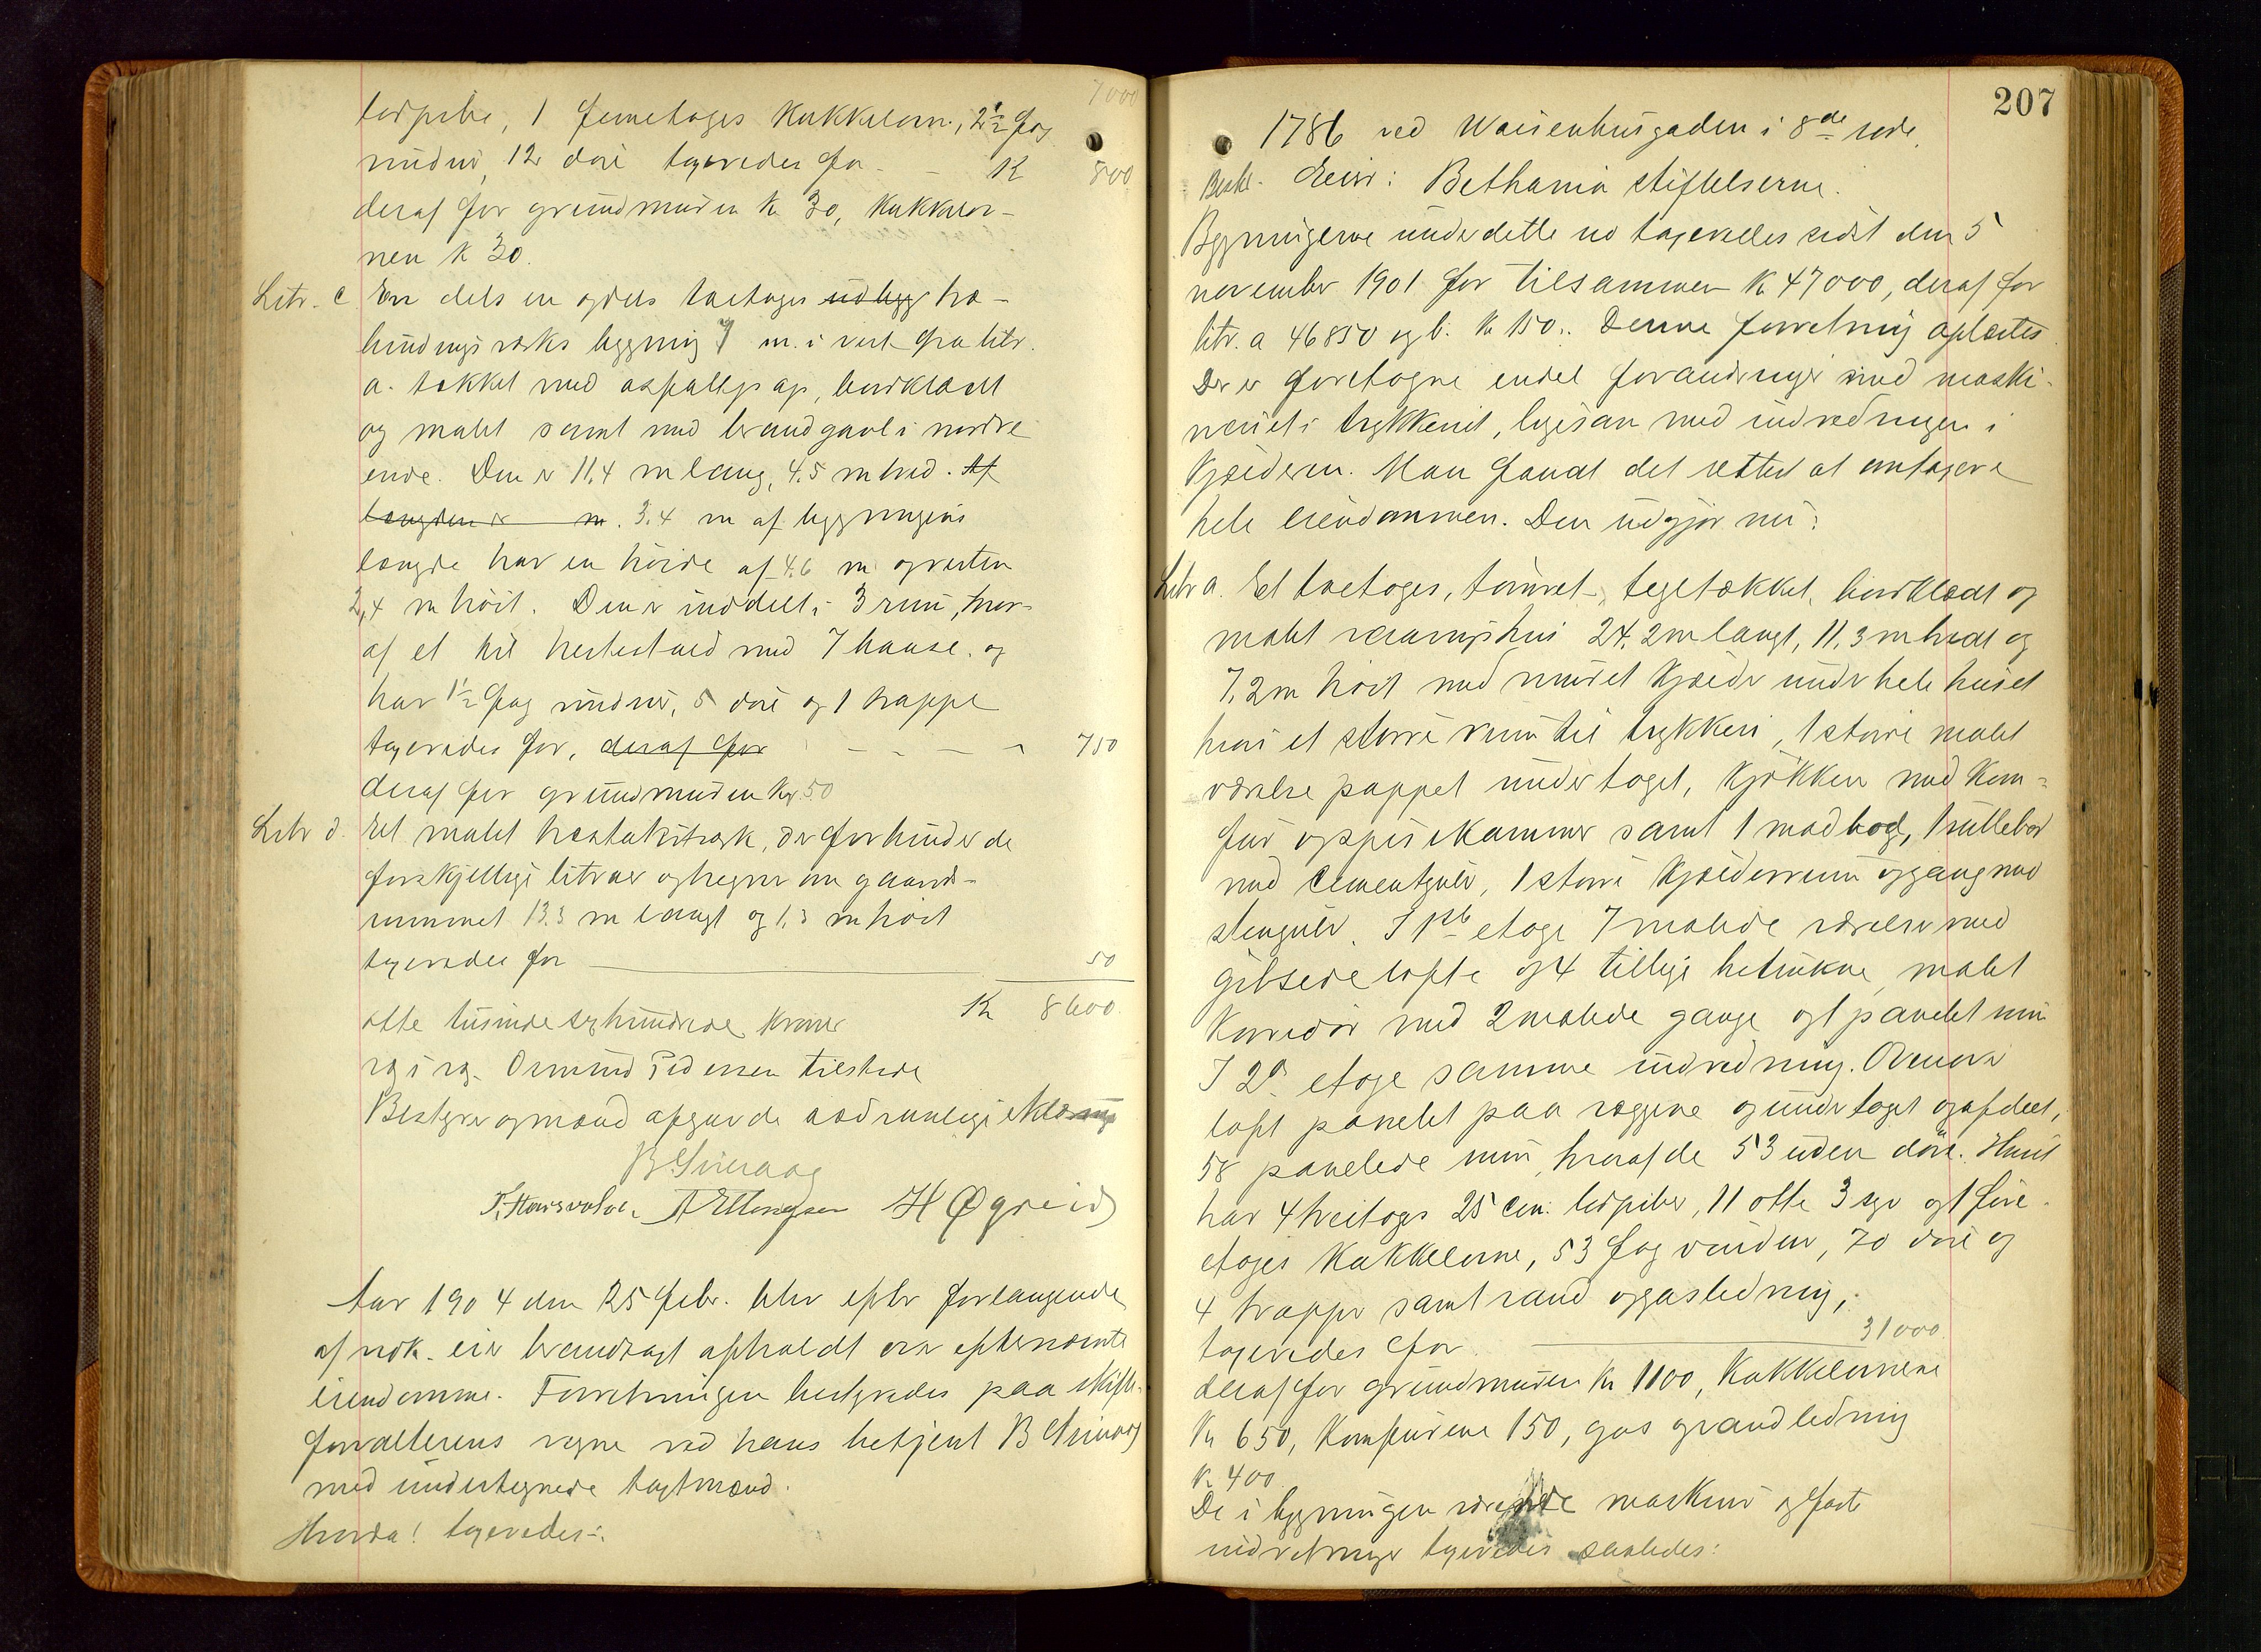 7000
lerpibe, 1 femetages kakkelovn, 2½ fag
vinduer, 12 døre taxeredes for - - K 800
deraf for grundmuren k 30, kakkelov-
nen k 30.
Litr. c En dels en og dels toetages udbygg træ-
bindingsværks bygning 7 m. i vest fra litr.
a. tækket med asfaltpap, bordklædt
og malet samt med brandgavl i nordre
ende. Den er 11,4 m lang, 4,5 m bred. Af
længden er m. 3,4 m af bygningens
længde har en høide af 4,6 m og resten
2,4 m høit. Den er inddelt i 3 rum, hvor-
af et til hestestald med 7 baase. og
har 1½ fag vinduer, 5 døre og 1 trappe
taxeredes for, deraf for - - - - 750
deraf for grundmuren kr. 50
Litr d. Et malet træstakitværk, der forbinder de
forskjellige litraer og hegner om gaards-
rummet 13,3 m langt og 1,3 m høit
taxeredes for 50
K 8600.
otte tusinde sexhundrede kroner
Osmund Pedersen tilstede
Bestyrer og mænd afgav de sædvanlige erklæringer
T. Hausvolve A Ellingsen H Øgreid
Aar 1904 den 25 febr. blev efter forlangende
af vedk. eier brandtaxt afholdt over efternævnte
eiendomme. Forretningen bestyredes paa skifte-
forvalterens vegne ved hans betjent B
med undertegnede taxtmænd.
Hvorda! taxeredes:
207
1786 ved Waisenhusgaden i 8de rode.
Bestl. Eier: Bethania stiftelserne.
Bygningerne under dette no taxeredes sidst den 5
november 1901 for tilsammen K 47000, deraf for
litr. a 46850 og b. K 150. Denne forretning oplæstes
Der er foretagne endel forandringer med maski-
neriet i trykkeriet, ligesaa med indredningen i
kjælderen. Man fandt det rettest at omtaxere
hele eiendommen. Den udgjør nu:
Litr a. Et toetages, tømret, tegltækket, bordklædt og
malet vaaningshus 24,2 m langt, 11,3 m bredt og
7,2 m høit med muret kjælder under hele huset
hvori et større rum til trykkeri, 1 større malet
værelse pappet under taget, kjøkken med kom-
fur og spisekammer samt 1 madbod, 1 rullebod
med cementgulv, 1 større kjælderrum og gang med
stengulv. I 1ste etage 7 malede værelser med
gibsede lofte og 4 tillige betrukne, malet
korridor med 2 malede gange og 1 panelet rum
I 2den etage samme indredning. Ovenover
loft panelet paa væggene og under taget og afdelt,
58 panelede rum, hvoraf de 53 uden døre. Huset
har 4 treetages 25 cm. lerpiber, 11 otte 3 sex og 1 fire
etages kakkelovne, 53 fag vinduer, 70 døre og
4 trapper samt vand og gasledning,
taxeredes for 31000.
deraf for grundmuren Kr 1100, kakkelovnene
Kr 650, komfurene 150, gas og vandledning
Kr 400.
De i bygningen værende maskiner og faste
indretninger taxeredes saaledes: